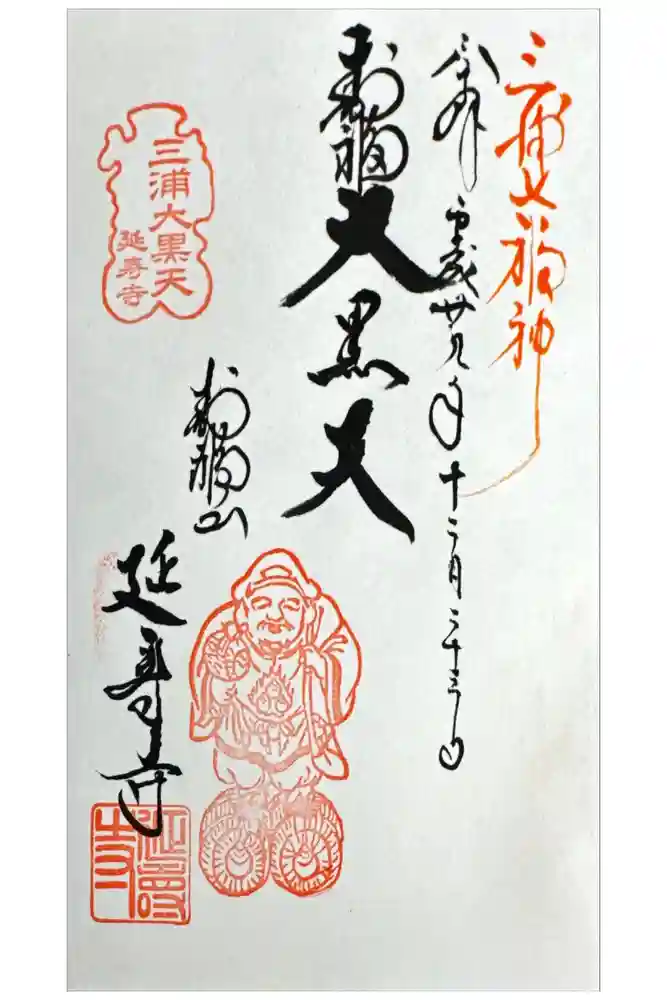 三浦七福神
奉拝 平成廿九年十二月二十三日
寿福 大黒天
寿福山
延寿寺
三浦大黒天
延寿寺
延寿寺